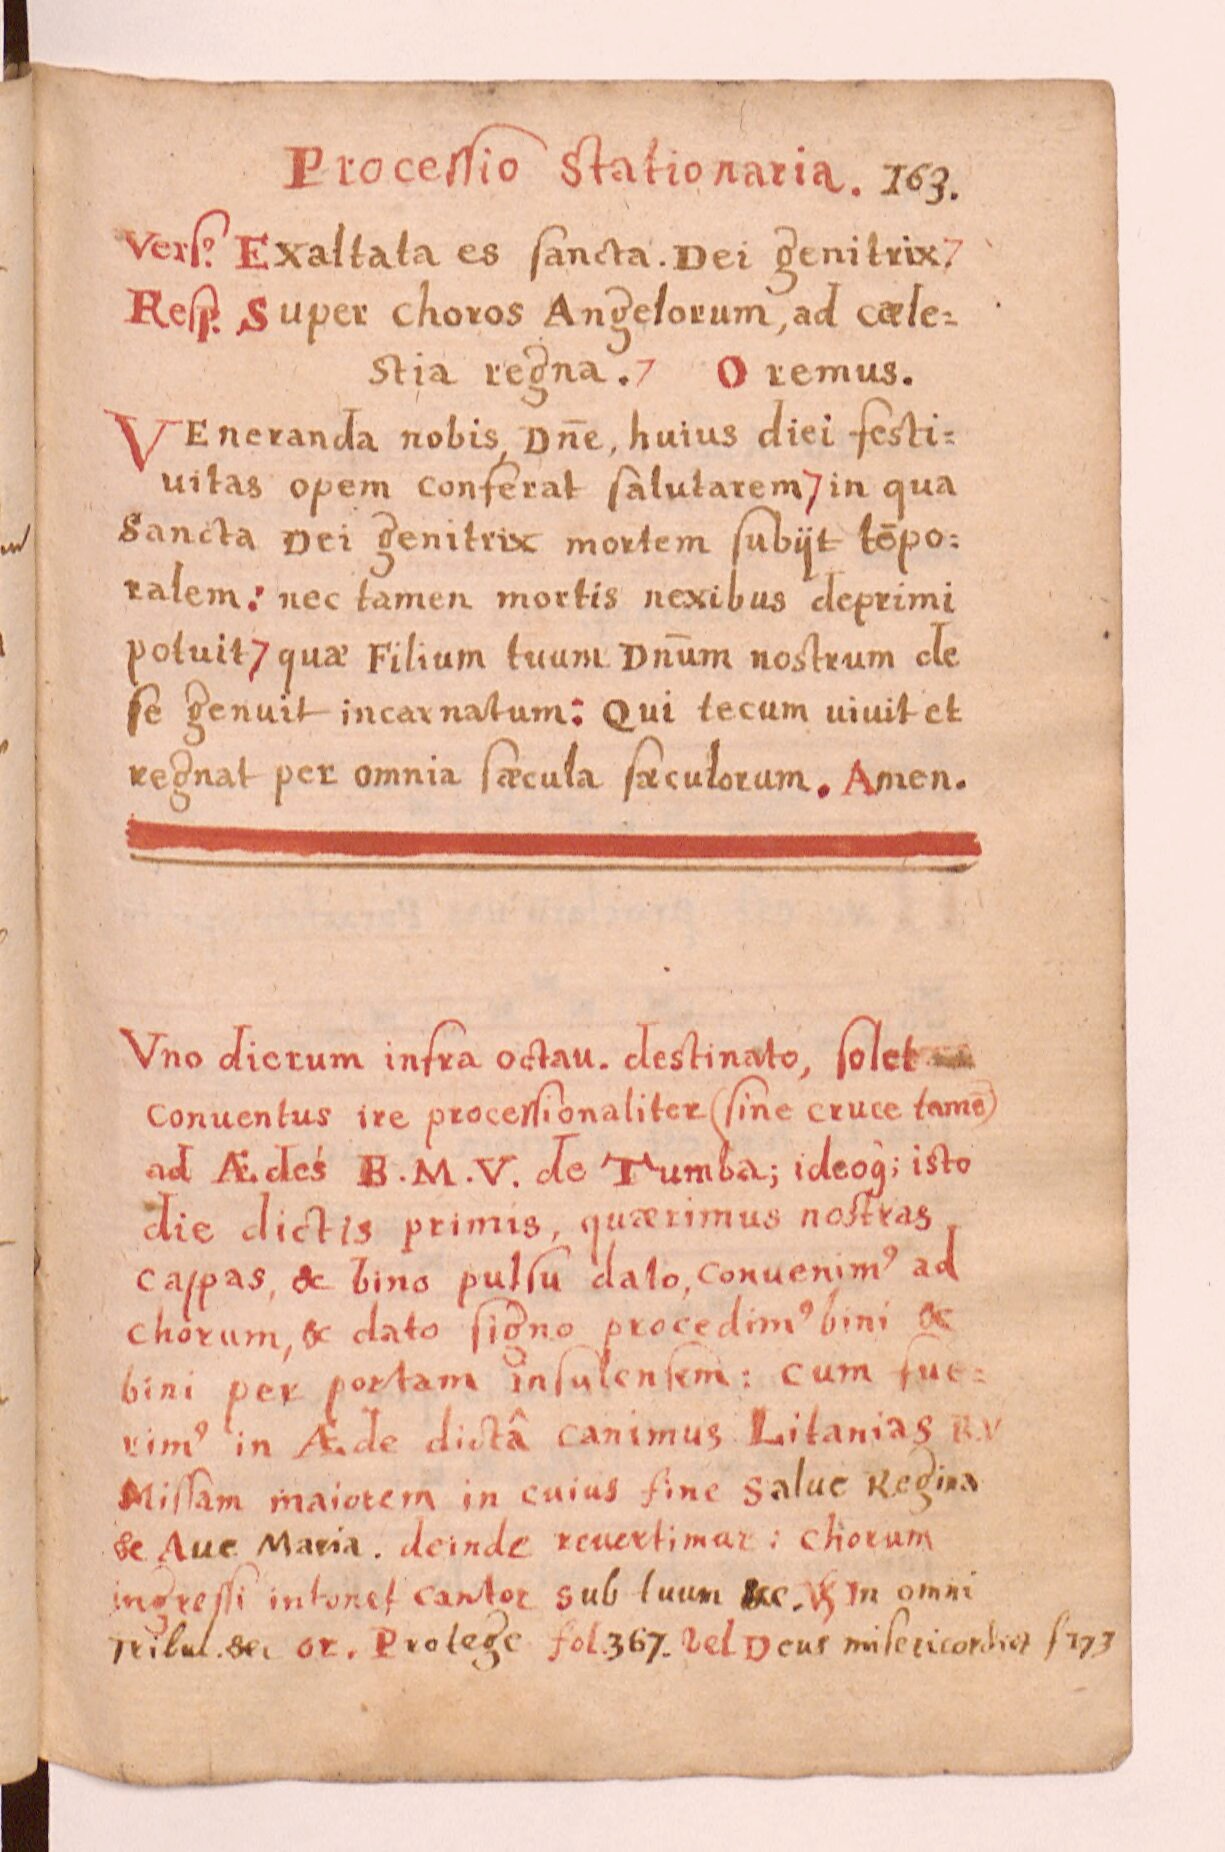 Processio Stationaria. 163.
Vers⁹. Exaltata es sancta. Dei genitrix.
Resp. Super choros Angelorum, ad cæle=
stia regna. Oremus.
VEneranda nobis, Dn̄e, huius diei festi=
uitas opem conferat salutarem, in qua
Sancta Dei genitrix mortem subijt tēpo=
ralem: nec tamen mortis nexibus deprimi
potuit, quæ Filium tuum Dn̄um nostrum de
se genuit incarnatum: Qui tecum uiuit et
regnat per omnia sæcula sæculorum. Amen.
Vno dierum infra octau. destinato, solet
Conuentus ire processionaliter (sine cruce tamē)
ad Ædes B.M.V. de Tumba; ideoq̀; isto
die dictis primis, quærimus nostras
cappas, & bino pulsu dato, conuenim⁹ ad
chorum, & dato signo procedim⁹ bini &
bini per portam insulensem: cum fue=
rim⁹ in Æde dictâ canimus Litanias B.V
Missam maiorem in cuius fine Salue Regina
& Aue Maria. deinde reuertimur: chorum
ingressi intonet cantor Sub tuum &c. V In omni
Tribul. &c or. Protege fol.367. vel Deus misericordiæ f 173